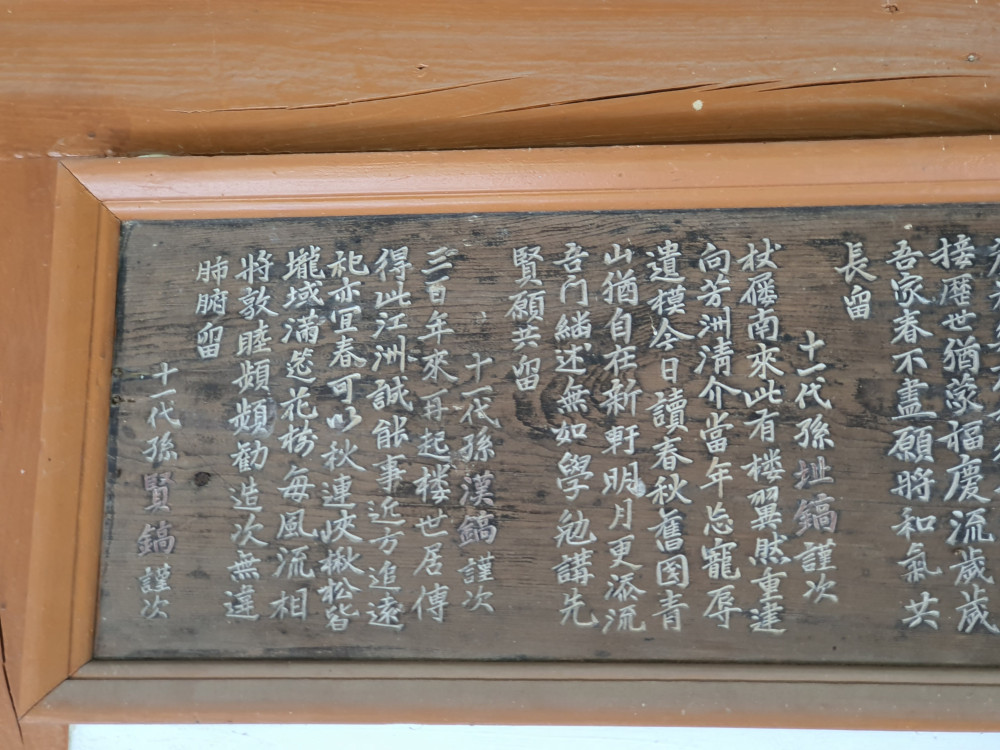 接歷世猶蒙福慶流歲歲
吾家春不盡願將和氣共
長留
十一代孫址鎬謹次
杖屨南來此有楼翼然重建
向芳洲淸介當年忘寵辱
遺模今日讀春秋舊青
山猶自在新軒明月更添流
吾門述無如學勉講先
賢願共留
十一代孫漢鎬謹次
三百年來再起楼世居傳
得此江洲誠能事近方追遠
祀亦宜春可以秋連峽楸松皆
壠域滿筵花樹每風流相
將敦睦頻頻勸造次無違
肺腑留
十一代孫賢鎬謹次